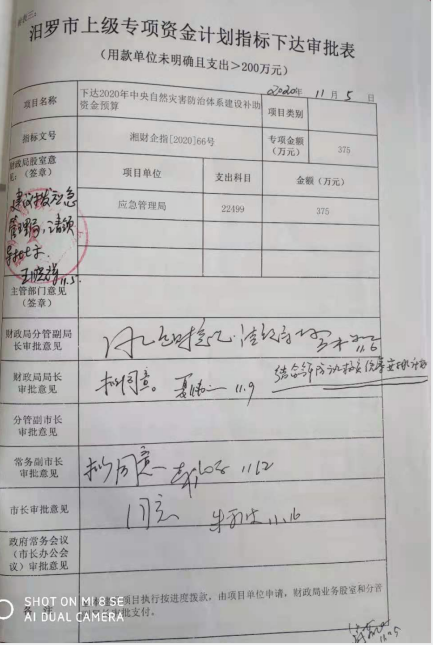 汨罗市上级专项资金计划指标下达审批表
（用款单位未明确且支出＞200万元）
2020年 11 月 5 日
项目名称
下达2020年中央自然灾害防治体系建设补助
资金预算
项目类别
指标文号
湘财企指[2020]66号
专项金额
（万元）
375
财政局股室意
见：（签章）
项目单位
支出科目
金额（万元）
应急管理局
22499
375
建议拨应急
管理局，请领
11.5.
主管部门意见
（签章）
财政局分管副局
长审批意见
11.6
财政局局长
审批意见
拟同意。
11.9
分管副市长
审批意见
常务副市长
审批意见
拟同意
11.12
市长审批意见
同意
11.16
政府常务会议
（市长办公会
议）审批意见
项目执行按进度拨款，由项目单位申请，财政局业务股室和分管
审批支付。
SHOT ON MI 8 SE
AI DUAL CAMERA